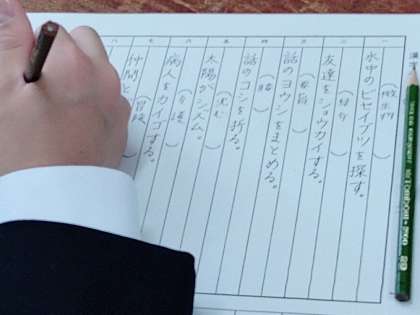 一
水中のビセイブツを探す。
(微生物)
二
友達をショウカイする。
(紹介)
三
話のヨウシをまとめる。
(要旨)
四
話のコシを折る。
(腰)
五
太陽がシズム。
(沈む)
六
病人をカイゴする。
(介護)
七
仲間と
(冒険
八